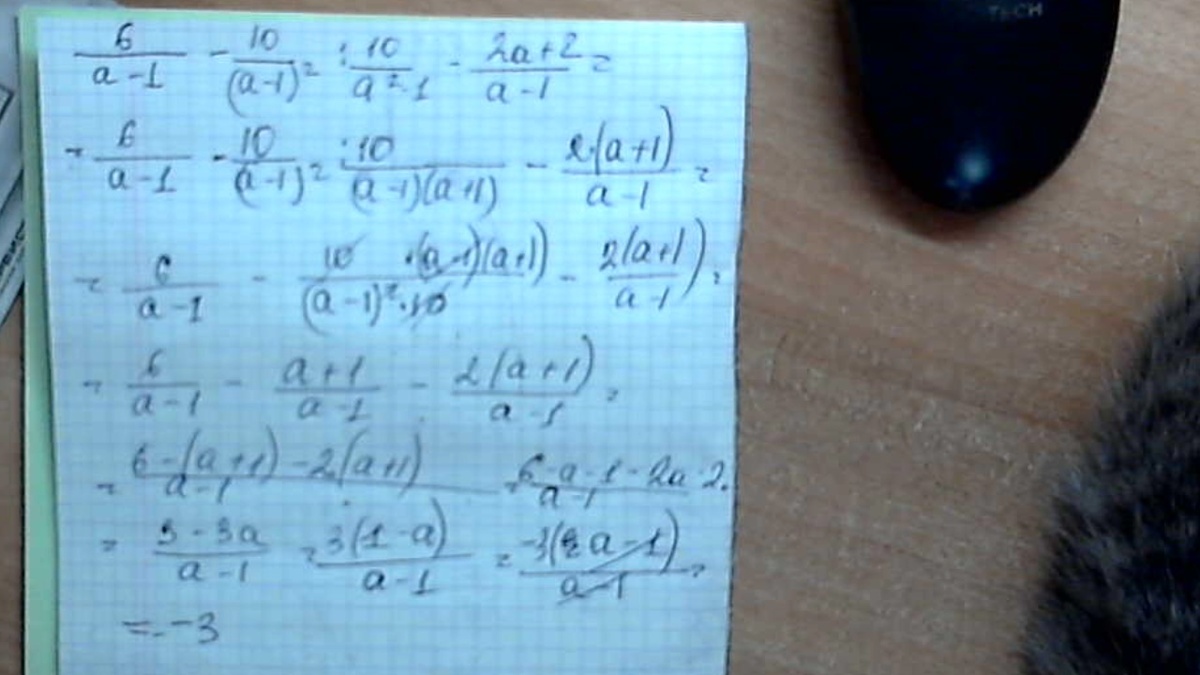 TECH
6/(a-1) - 10/(a-1)² : 10/(a²-1) - (2a+2)/(a-1) =
= 6/(a-1) - 10/(a-1)² : 10/((a-1)(a+1)) - 2·(a+1)/(a-1) =
= 6/(a-1) - (10·(a-1)(a+1))/((a-1)²·10) - 2(a+1)/(a-1) =
= 6/(a-1) - (a+1)/(a-1) - 2(a+1)/(a-1) =
= (6-(a+1)-2(a+1))/(a-1) = (6-a-1-2a-2)/(a-1)
= (3-3a)/(a-1) = 3(1-a)/(a-1) = -3(a-1)/(a-1) =
= -3